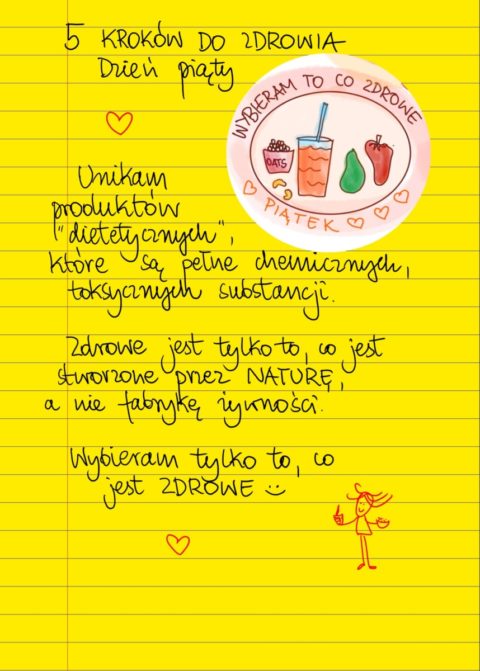 5 KROKÓW DO ZDROWIA
Dzień piąty
WYBIERAM TO CO ZDROWE
OATS
PIĄTEK
Unikam
produktów
"dietetycznych",
które są pełne chemicznych,
toksycznych substancji.
Zdrowe jest tylko to, co jest
stworzone przez NATURĘ,
a nie fabrykę żywności.
Wybieram tylko to, co
jest ZDROWE :)